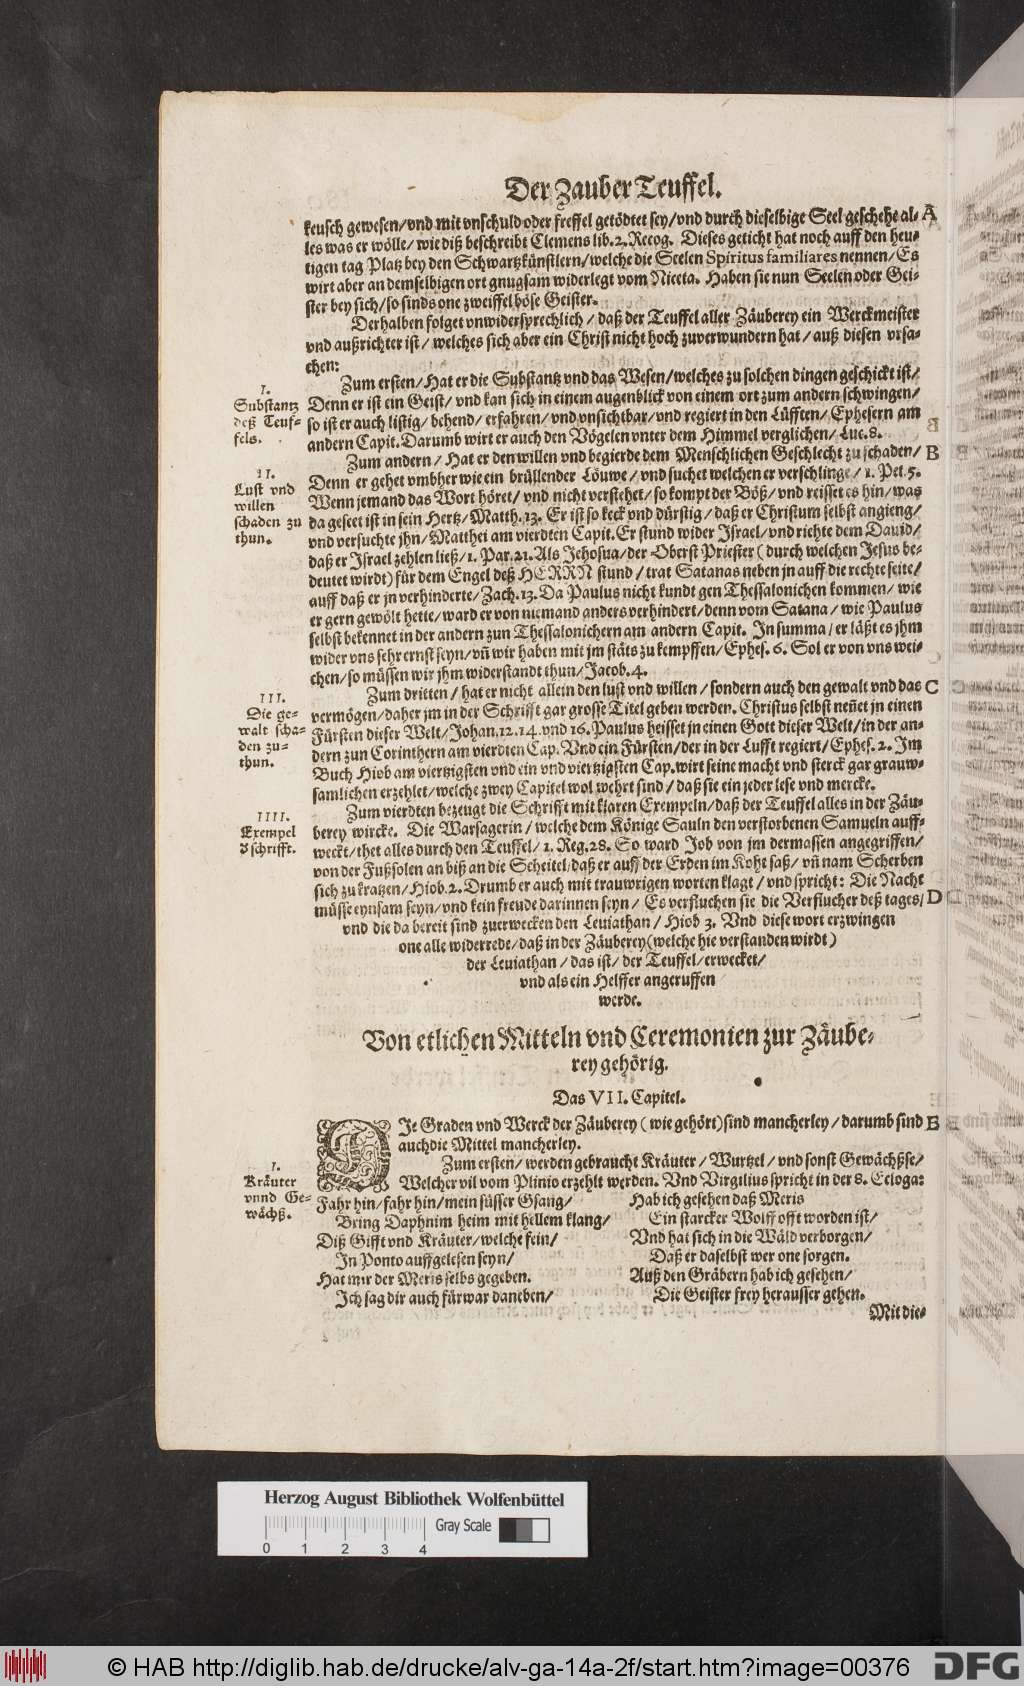 Der Zauber Teuffel.
keusch gewesen/vnd mit vnschuld oder freffel getödtet sey/vnd durch dieselbige Seel geschehe al- A
les was er wölle/wie diß beschreibt Clemens lib.2.Recog. Dieses geticht hat noch auff den heu-
tigen tag Platz bey den Schwartzkünstlern/welche die Seelen Spiritus familiares nennen/Es
wirt aber an demselbigen ort gnugsam widerlegt vom Niceta. Haben sie nun Seelen oder Gei-
ster bey sich/so sinds one zweiffel böse Geister.
Derhalben folget vnwidersprechlich/daß der Teuffel aller Zäuberey ein Werckmeister
vnd außrichter ist/welches sich aber ein Christ nicht hoch zuverwundern hat/auß diesen vrsa-
chen:
I.
Substantz
deß Teuf-
fels.
Zum ersten/Hat er die Substantz vnd das Wesen/welches zu solchen dingen geschickt ist/
Denn er ist ein Geist/vnd kan sich in einem augenblick von einem ort zum andern schwingen/
so ist er auch listig/behend/erfahren/vnd vnsichtbar/vnd regiert in den Lüfften/Ephesern am
andern Capit.Darumb wirt er auch den Vögelen vnter dem Himmel verglichen/Luc.8.
II.
Lust vnd
willen
schaden zu
thun.
Zum andern/Hat er den willen vnd begierde dem Menschlichen Geschlecht zu schaden/ B
Denn er gehet vmbher wie ein brüllender Löuwe/vnd suchet welchen er verschlinge/1. Pet.5.
Wenn jemand das Wort höret/vnd nicht verstehet/so kompt der Böß/vnd reisset es hin/was
da geseet ist in sein Hertz/Matth.13. Er ist so keck vnd dürstig/daß er Christum selbst angieng/
vnd versuchte jhn/Matthei am vierdten Capit.Er stund wider Israel/vnd richte dem Dauid/
daß er Israel zehlen ließ/1.Par.21.Als Jehosua/der Oberst Priester (durch welchen Jesus be-
deutet wirdt) für dem Engel deß HERRN stund/trat Satanas neben jn auff die rechte seite/
auff daß er jn verhinderte/Zach.13.Da Paulus nicht kundt gen Thessalonichen kommen/wie
er gern gewölt hette/ward er von niemand anders verhindert/denn vom Satana/wie Paulus
selbst bekennet in der andern zun Thessalonichern am andern Capit. In summa/er läßt es jhm
wider vns sehr ernst seyn/vñ wir haben mit jm stäts zu kempffen/Ephes.6. Sol er von vns wei-
chen/so müssen wir jhm widerstandt thun/Jacob.4.
III.
Die ge-
walt scha-
den zu-
thun.
Zum dritten/hat er nicht allein den lust vnd willen/sondern auch den gewalt vnd das C
vermögen/daher jm in der Schrifft gar grosse Titel geben werden. Christus selbst neñet jn einen
Fürsten dieser Welt/Johan.12.14.vnd 16.Paulus heisset jn einen Gott dieser Welt/in der an-
dern zun Corinthern am vierdten Cap. Vnd ein Fürsten/der in der Lufft regiert/Ephes.2. Im
Buch Hiob am viertzigsten vnd ein vnd viertzigsten Cap.wirt seine macht vnd sterck gar grauw-
samlichen erzehlet/welche zwey Capitel wol wehrt sind/daß sie ein jeder lese vnd mercke.
IIII.
Exempel
d schrifft.
Zum vierdten bezeugt die Schrifft mit klaren Exempeln/daß der Teuffel alles in der Zäu-
berey wircke. Die Warsagerin/welche dem Könige Sauln den verstorbenen Samueln auff-
weckt/thet alles durch den Teuffel/1.Reg.28. So ward Job von jm dermassen angegriffen/
von der Fußsolen an biß an die Scheitel/daß er auff der Erden im Koht saß/vñ nam Scherben
sich zu kratzen/Hiob.2.Drumb er auch mit trauwrigen worten klagt/vnd spricht: Die Nacht
müsse eynsam seyn/vnd kein freude darinnen seyn/Es verfluchen sie die Verflucher deß tages/ D
vnd die da bereit sind zuerwecken den Leuiathan/Hiob 3. Vnd diese wort erzwingen
one alle widerrede/daß in der Zäuberey(welche hie verstanden wirdt)
der Leuiathan/das ist/der Teuffel/erwecket/
vnd als ein Helffer angeruffen
werde.
Von etlichen Mitteln vnd Ceremonien zur Zäube-
rey gehörig.
Das VII. Capitel.
DIe Graden vnd Werck der Zäuberey (wie gehört)sind mancherley/darumb sind E
auch die Mittel mancherley.
I.
Kräuter
vnnd Ge-
wächß.
Zum ersten/werden gebraucht Kräuter/Wurtzel/vnd sonst Gewächßse/
Welcher vil vom Plinio erzehlt werden. Vnd Virgilius spricht in der 8. Ecloga:
Fahr hin/fahr hin/mein süsser Gsang/
Bring Daphnim heim mit hellem klang/
Diß Gifft vnd Kräuter/welche fein/
In Ponto auffgelesen seyn/
Hat mir der Meris selbs gegeben.
Ich sag dir auch fürwar daneben/
Hab ich gesehen daß Meris
Ein starcker Wolff offt worden ist/
Vnd hat sich in die Wäld verborgen/
Daß er daselbst wer one sorgen.
Auß den Gräbern hab ich gesehen/
Die Geister frey herausser gehen.
Mit die-
Herzog August Bibliothek Wolfenbüttel
Gray Scale
0 1 2 3 4
© HAB http://diglib.hab.de/drucke/alv-ga-14a-2f/start.htm?image=00376
DFG